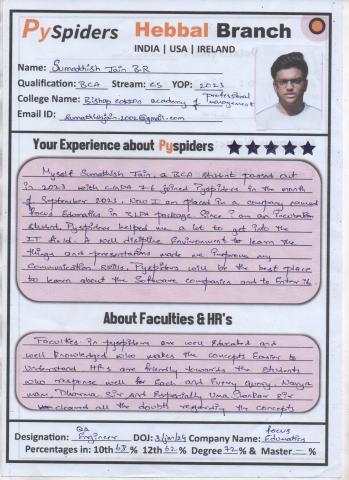 PySpiders Hebbal Branch
INDIA | USA | IRELAND
Name: Sumathish Jain B.R
Qualification: BCA Stream: CS YOP: 2023
College Name: Bishop cotton academy of professional management
Email ID:
Your Experience about Pyspiders
Myself Sumathish Jain, a BCA student passed out
in 2023 with CGPA 7.6 joined Pyspiders in the month
of September 2023. Now I am placed in a company named
focus Edumatics in package Since i am an
student, Pyspiders helped me a lot to get into the
IT field. A well discipline Environment to learn the
things and presentations made me improve my
Communication skills. Pyspiders will be the best place
to learn about the Software companies and to Enter it.
About Faculties & HR's
Faculties in pyspiders are well Educated and
well knowledged who makes the concepts Easier to
Understand. HR's are friendly towards the students
who response well for Each and Every query.
mam, Dharma Sir and Especially Uma Shankar Sir
cleared all the doubts regarding the concepts
Designation: QA Engineer DOJ: 3/jan/24 Company Name: focus Edumatics
Percentages in: 10th 68 % 12th 62 % Degree 72 % & Master — %